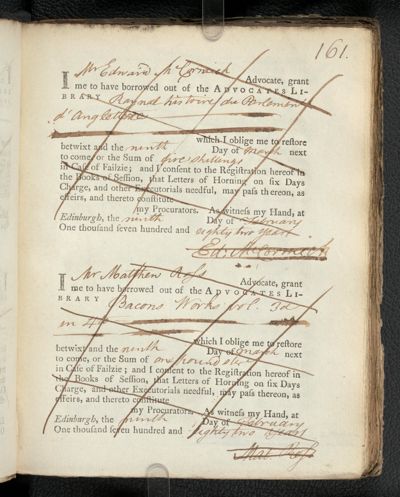 161.
I Mr Edward McCormick Advocate, grant
me to have borrowed out of the ADVOCATES LI-
BRARY Raynal histoire du Parlement
d'Angleterre
which I oblige me to reſtore
betwixt and the ninth Day of March next
to come, or the Sum of five shillings
in Caſe of Failzie; and I conſent to the Regiſtration hereof in
the Books of Seſſion, that Letters of Horning on ſix Days
Charge, and other Executorials needful, may paſs thereon, as
effeirs, and thereto conſtitute
my Procurators. As witneſs my Hand, at
Edinburgh, the ninth Day of February
One thouſand ſeven hundred and eighty two years
Ed: McCormick
I Mr Matthew Ross Advocate, grant
me to have borrowed out of the ADVOCATES LI-
BRARY Bacons Works vol. 3d
in 4to
which I oblige me to reſtore
betwixt and the ninth Day of March next
to come, or the Sum of one pound ster
in Caſe of Failzie; and I conſent to the Regiſtration hereof in
the Books of Seſſion, that Letters of Horning on ſix Days
Charge, and other Executorials needful, may paſs thereon, as
effeirs, and thereto conſtitute
my Procurators. As witneſs my Hand, at
Edinburgh, the ninth Day of February
One thouſand ſeven hundred and eighty two years
Mat: Ross